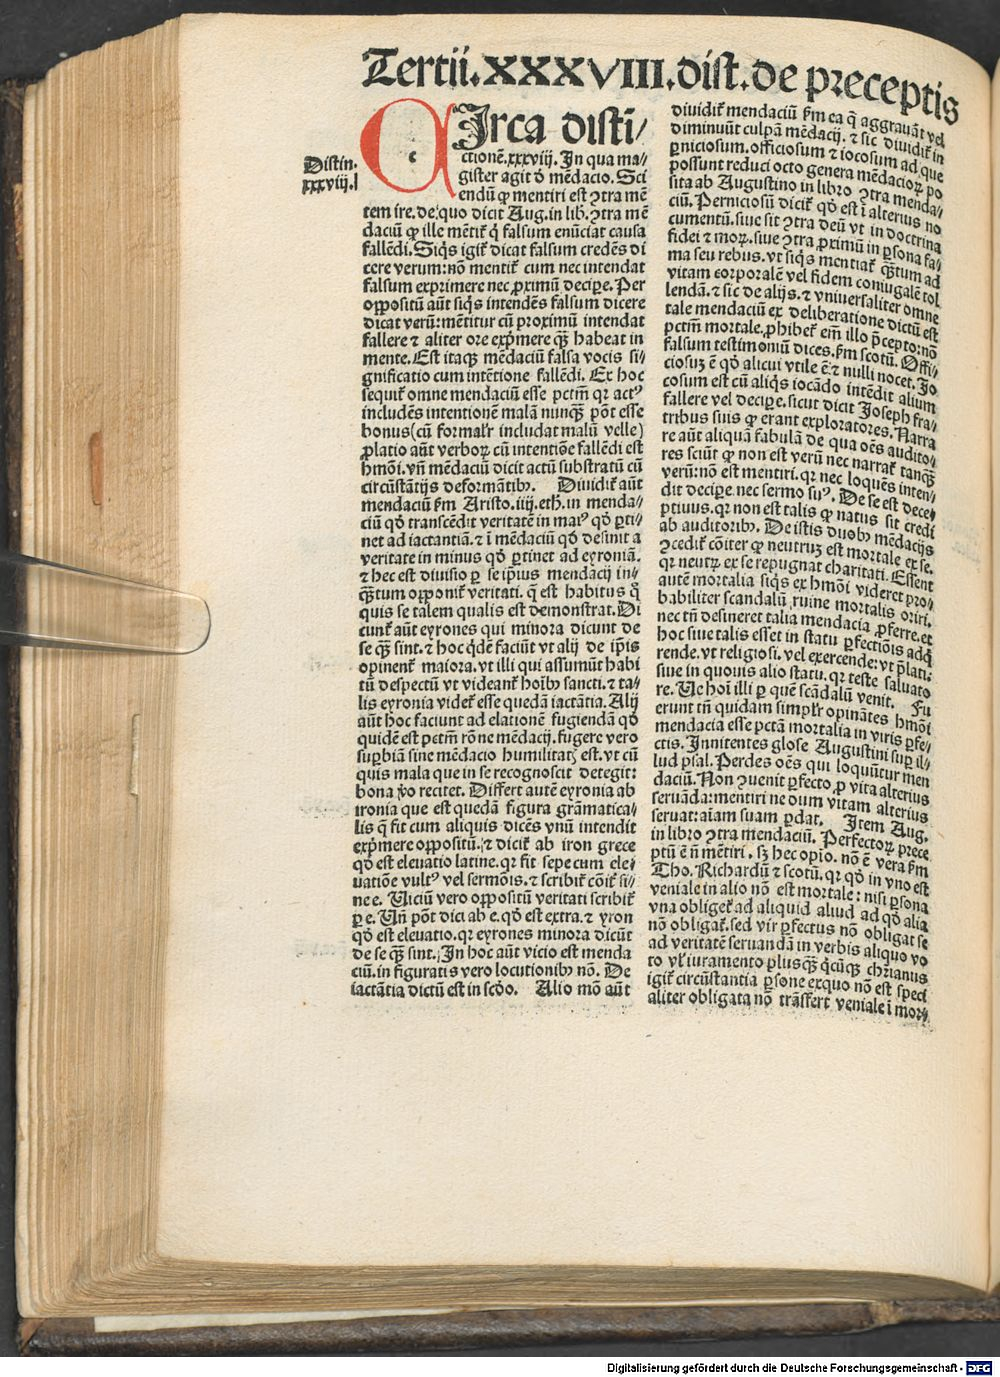 Tertii.XXXVIII.dist.de preceptis
Distin.
xxxviij.
CIrca disti/
ctionē.xxxviij. In qua ma/
gister agit d̄ mēdacio. Sci
endū ꝙ mentiri est ↄtra mē
tem ire. de quo dicit Aug. in lib. ↄtra mē
daciū ꝙ ille mētit̄ q̇ falsum enūciat causa
fallēdi. Siq̇s igit̄ dicat falsum credēs di
cere verum: nō mentit̄ cum nec intendat
falsum exprimere nec ꝓximū deciꝑe. Per
oppositū aūt siq̇s intendēs falsum dicere
dicat verū: mētitur cū proximū intendat
fallere ⁊ aliter ore exp̄mere qȝ̄ habeat in
mente. Est itaqȝ mēdaciū falsa vocis si/
gnificatio cum intētione fallēdi. Ex hoc
sequit̄ omne mendaciū esse pctm̄ qꝛ actꝰ
includēs intentionē malā nunqȝ̄ pōt esse
bonus (cū formalr̄ includat malū velle)
ꝓlatio aūt verboꝝ cū intentiōe fallēdi est
hmōi. vn̄ mēdaciū dicit actū substratū cū
circūstātijs deformātibꝰ. Diuidit̄ aūt
mendaciū ẜm Aristo. iiij. eth. in menda/
ciū qd̄ transcēdit veritatē in maiꝰ qd̄ ꝑti/
net ad iactantiā. ⁊ ī mēdaciū qd̄ desinit a
veritate in minus qd̄ ꝑtinet ad eyroniā.
⁊ hec est diuisio ꝑ se ip̄ius mendacij in/
qȝ̄tum opponit̄ veritati. q̄ est habitus q̊
quis se talem qualis est demonstrat. Di
cunt̄ aūt eyrones qui minora dicunt de
se qȝ̄ sint. ⁊ hoc q̇dē faciūt vt alij de ip̄is
opinent̄ maiora. vt illi qui assumūt habi
tū despectū vt videant̄ hoībꝰ sancti. ⁊ ta/
lis eyronia videt̄ esse quedā iactātia. Alij
aūt hoc faciunt ad elationē fugiendā qd̄
quidē est pctm̄ rōne mēdacij. fugere vero
suꝑbiā sine mēdacio humilitatꝭ est. vt cū
quis mala que in se recognoscit detegit:
bona v̊o recitet. Differt autē eyronia ab
ironia que est quedā figura grāmatica/
lis q̄ fit cum aliquis dicēs vnū intendit
exp̄mere oppositū. ⁊ dicit̄ ab iron grece
qd̄ est eleuatio latine. qꝛ fit sepe cum ele/
uatiōe vultꝰ vel sermōis. ⁊ scribit̄ cōit̄ si/
ne e. Uiciū vero oppositū veritati scribit̄
ꝑ e. Un̄ pōt dici ab e. qd̄ est extra. ⁊ yron
qd̄ est eleuatio. qꝛ eyrones minora dicūt
de se qȝ̄ sint. In hoc aūt vicio est menda
ciū. in figuratis vero locutionibꝰ nō. De
iactātia dictū est in scd̄o. Alio mō aūt
diuidit̄ mendaciū ẜm ea q̄ aggrauāt vel
diminuūt culpā mēdacij. ⁊ sic diuidit̄ in
ꝑniciosum. officiosum ⁊ iocosum ad que
possunt reduci octo genera mēdacioꝝ po
sita ab Augustino in libro ↄtra menda/
ciū. Perniciosū dicit̄ qd̄ est ī alterius no
cumentū. siue sit ↄtra deū vt in doctrina
fidei ⁊ moꝝ. siue ↄtra ꝓximū in ꝑsona fa/
ma seu rebus. vt siq̇s mentiat̄ qȝ̄tum ad
vitam corporalē vel fidem coniugalē tol
lendā. ⁊ sic de alijs. ⁊ vniuersaliter omne
tale mendaciū ex deliberatione dictū est
pctm̄ mortale. ꝓhibet̄ em̄ illo p̄cepto: nō
falsum testimoniū dices. ẜm scotū. Offi/
ciosuȝ ē qd̄ alicui vtile ē: ⁊ nulli nocet. Jo
cosum est cū aliq̇s iocādo intēdit alium
fallere vel deciꝑe. sicut dicit Joseph fra/
tribus suis ꝙ erant exploratores. Narra
re aūt aliquā fabulā de qua oēs audito/
res sciūt ꝙ non est verū nec narrat̄ tanqȝ̄
verū: nō est mentiri. qꝛ nec loquēs inten/
dit deciꝑe. nec sermo suꝰ. De se est dece/
ptiuus. qꝛ non est talis ꝙ natus sit credi
ab auditoribꝰ. De istis duobꝰ mēdacijs
ↄcedit̄ cōiter ꝙ neutruȝ est mortale ex se.
qꝛ neutꝝ ex se repugnat charitati. Essent
autē mortalia siq̇s ex hmōi videret pro/
babiliter scandalū ruine mortalis oriri.
nec tn̄ desineret talia mendacia ꝓferre. et
hoc siue talis esset in statu ꝑfectiōis adq̇
rende. vt religiosi. vel exercende: vt p̄lati:
siue in quouis alio statu. qꝛ teste saluato
re. Ue hoī illi ꝑ quē scādalū venit. Fu
erunt tn̄ quidam simplr̄ opinātes hmōi
mendacia esse pctā mortalia in viris ꝑfe/
ctis. Innitentes glose Augustini suꝑ il/
lud psal. Perdes oēs qui loquūtur men
daciū. Non ↄuenit ꝑfecto. ꝓ vita alterius
seruāda: mentiri ne dum vitam alterius
seruat: aīam suam ꝑdat. Item Aug.
in libro ↄtra mendaciū. Perfectoꝝ prece
ptū ē n̄ mētiri. sȝ hec opīo. nō ē vera ẜm
Tho. Richardū ⁊ scotū. qꝛ qd̄ in vno est
veniale in alio nō est mortale: nisi ꝑsona
vna obliget̄ ad aliquid aliud ad qd̄ alia
nō obligat̄. sed vir ꝑfectus nō obligat se
ad veritatē seruandā in verbis aliquo vo
to vl̓ iuramento plusqȝ̄ q̇cūqȝ chr̄ianus
igit̄ circūstantia ꝑsone exquo nō est speci
aliter obligata nō trāsfert veniale ī mor/
Digitalisierung gefördert durch die Deutsche Forschungsgemeinschaft - DFG